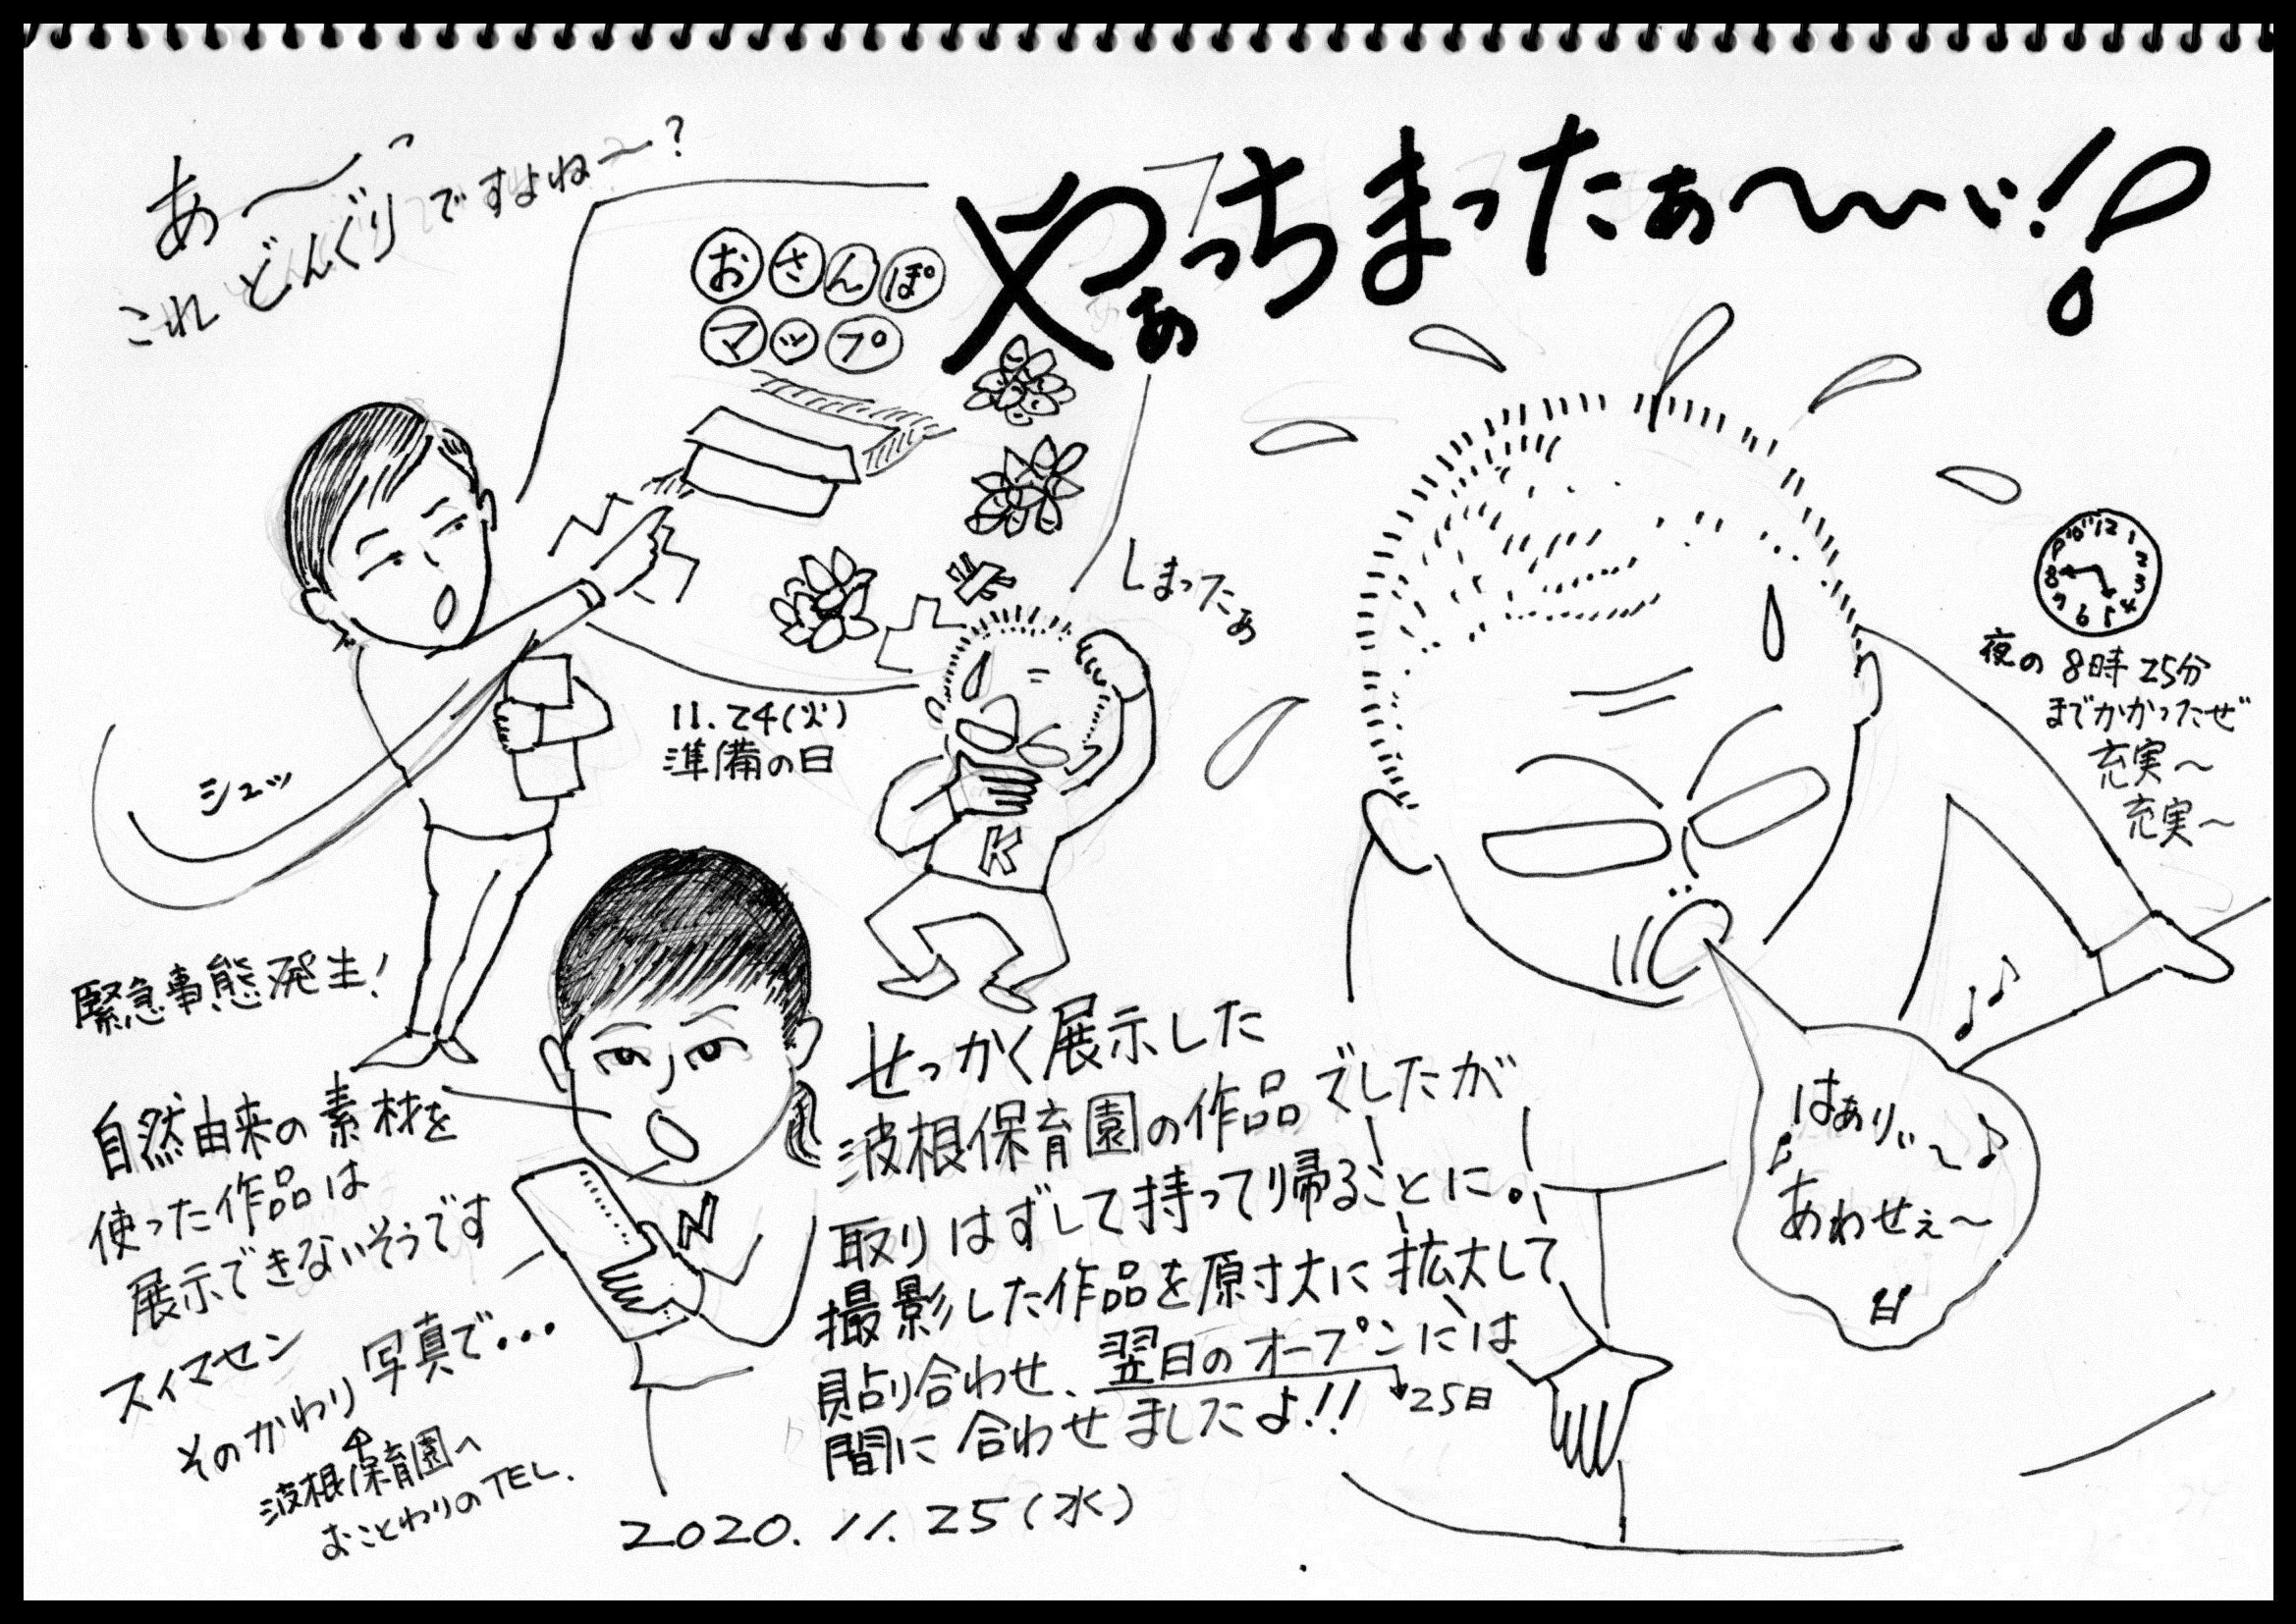 やぁっちまったぁ〜〜ぃ!?
あ〜っ
これどんぐりですよね〜?
おさんぽ
マップ
シュッ
11.24(火)
準備の日
しまったぁ
K
10 11 12 1 2 3 4 5 6 7 8 9
夜の8時25分
までかかったぜ
充実〜
充実〜
緊急事態発生!
自然由来の素材を
使った作品は
展示できないそうです
スイマセン
そのかわり写真で...
波根保育園へ
おことわりのTEL.
N
せっかく展示した
波根保育園の作品でしたが
取りはずして持って帰ることに。
撮影した作品を原寸大に拡大して
貼り合わせ、翌日のオープンには
25日
間に合わせましたよ!!
2020.11.25(水)
はありぃ〜♪
♪あわせぇ〜